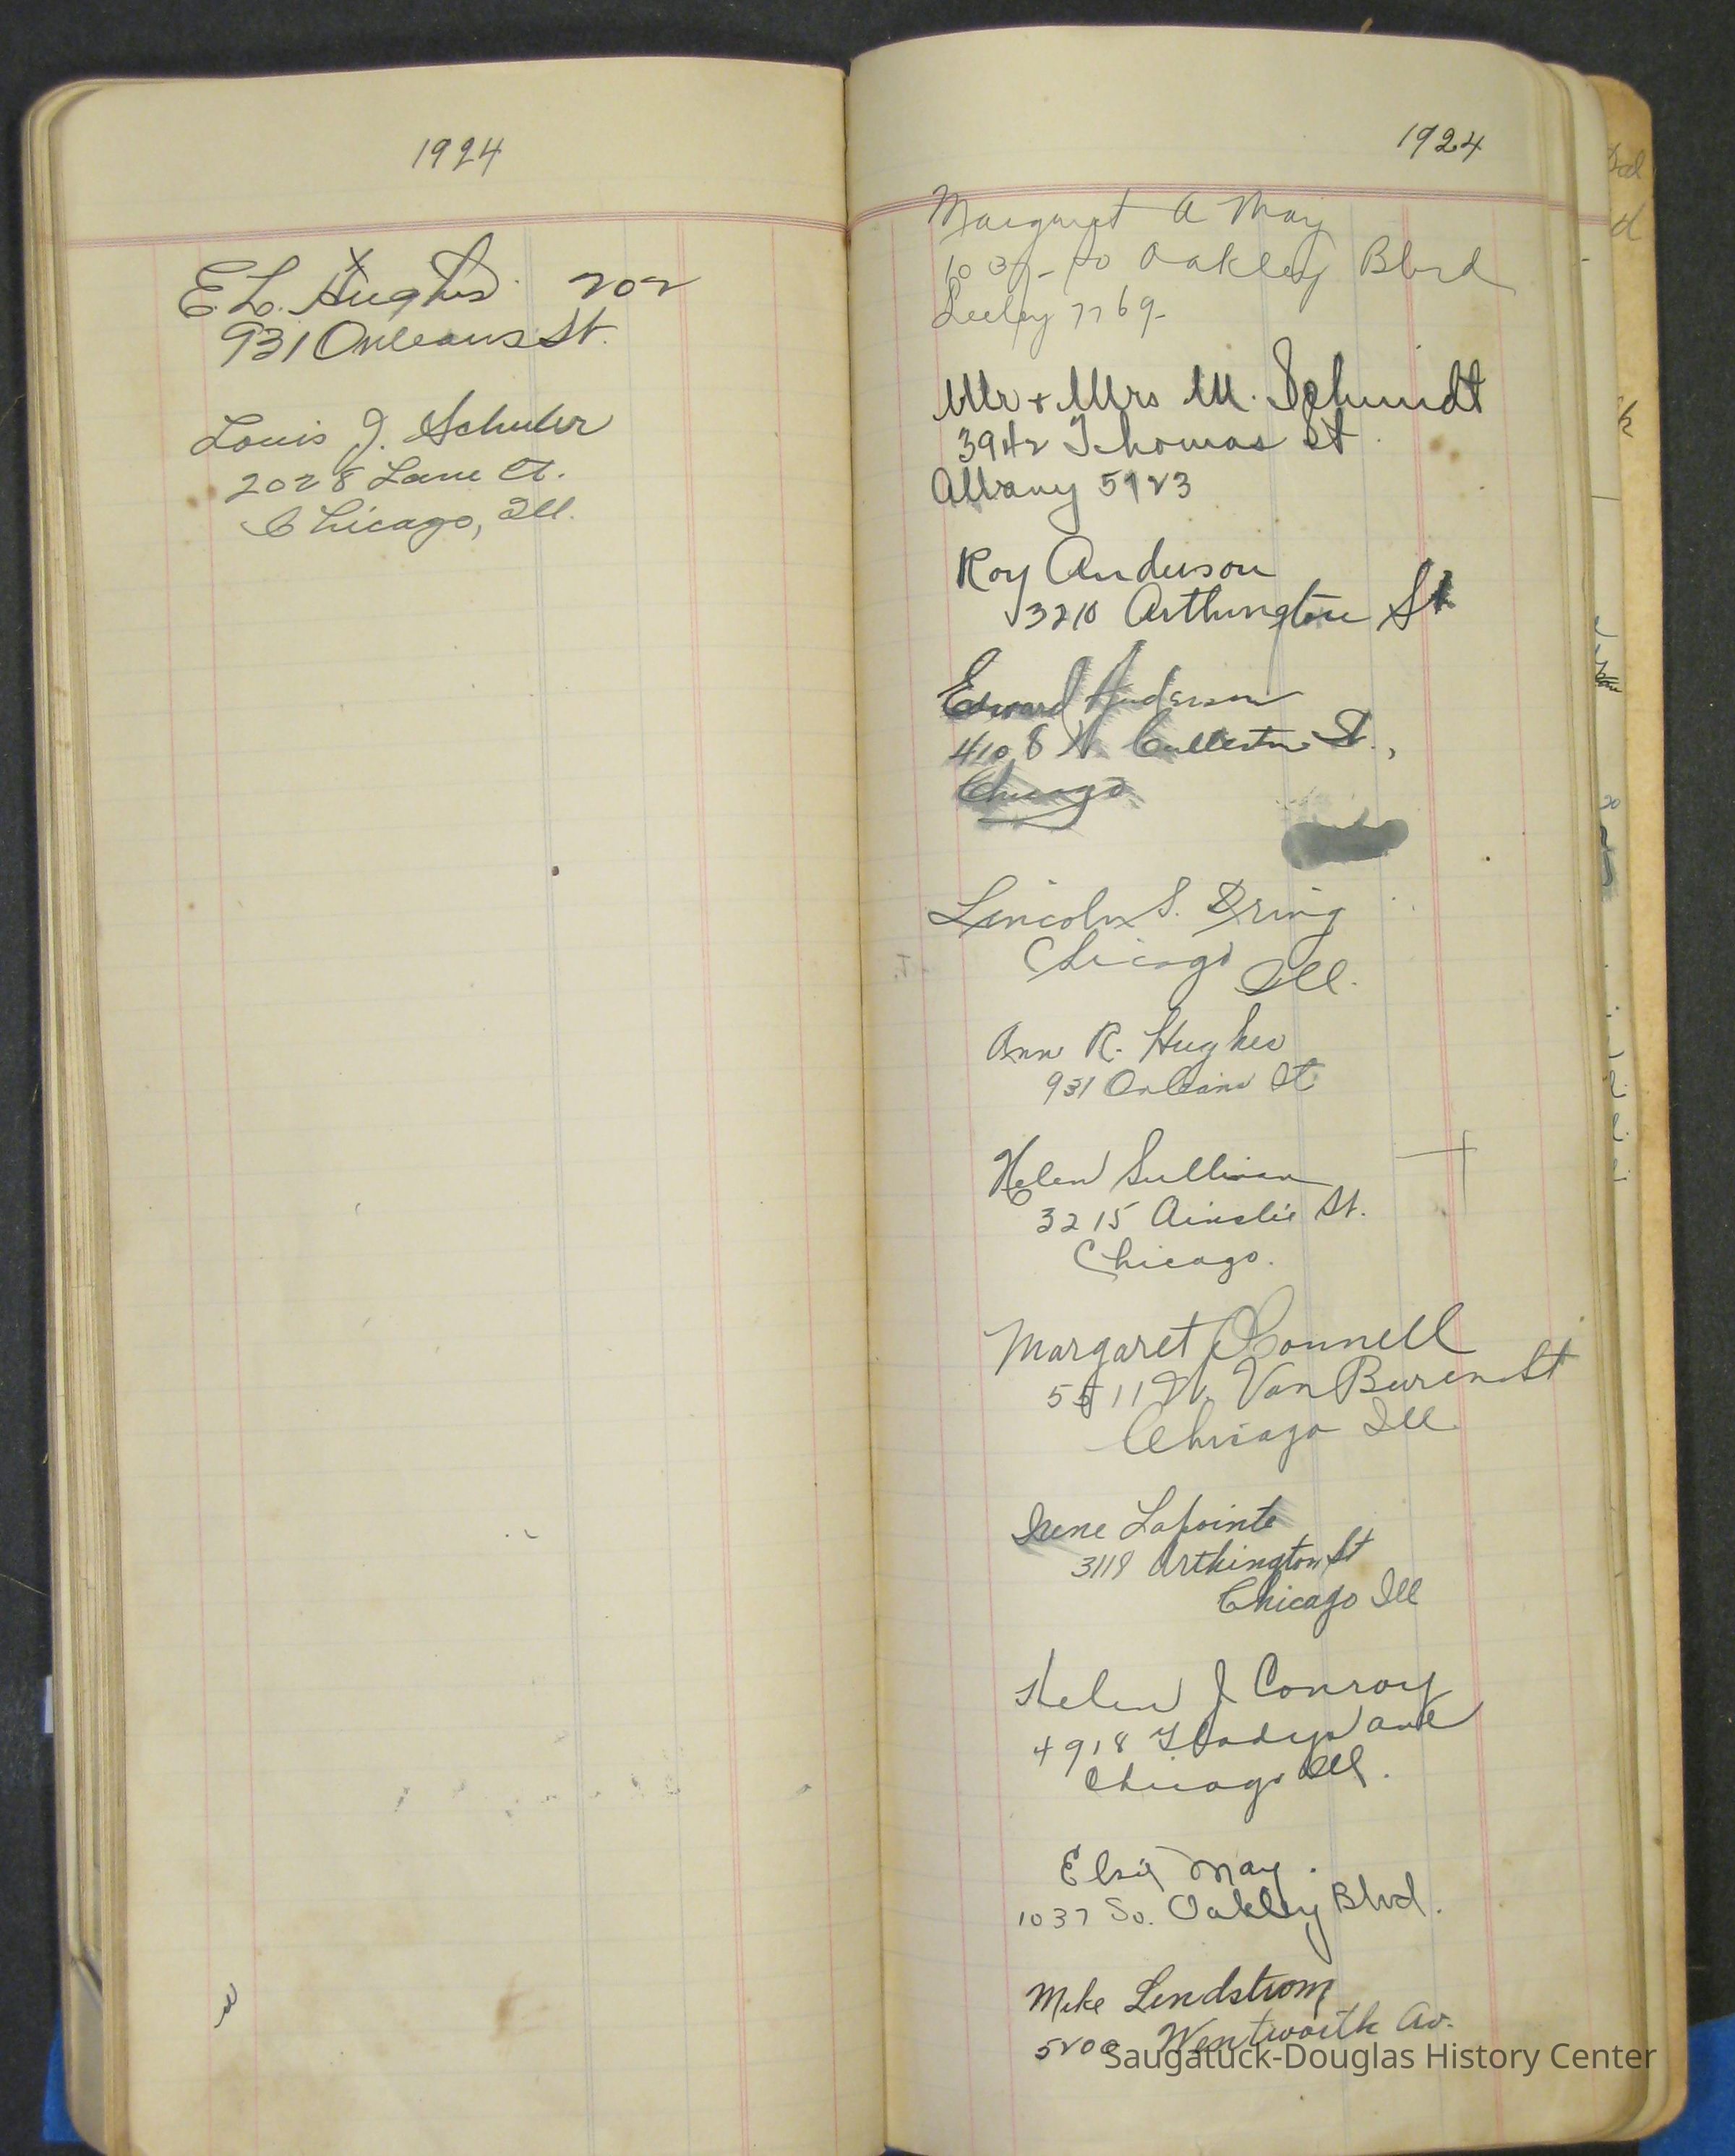 1924
E. L. Hughes 202
931 Orleans St.
Louis J. Schuler
2028 Lane Ct.
Chicago, Ill.
1924
Margaret A May
1037 So Oakley Blvd
Seeley 7769
Mr + Mrs M. Schmidt
3942 Thomas St.
Albany 5923
Roy Anderson
3210 Arthington St
Edward Anderson
4108 W. Cullerton St.,
Chicago
Lincoln S. Dring
Chicago
Ill.
Ann R. Hughes
931 Orleans St
Helen Sullivan
3215 Ainslie St.
Chicago.
Margaret O'Connell
5511 W. Van Buren St
Chicago Ill
Irene Lapointe
3118 Arthington St
Chicago Ill
Helen J Conroy
4918 Gladys Ave
Chicago Ill.
Elsie May.
1037 So. Oakley Blvd.
Mike Lindstrom
5200 Wentworth Av.
Saugatuck-Douglas History Center